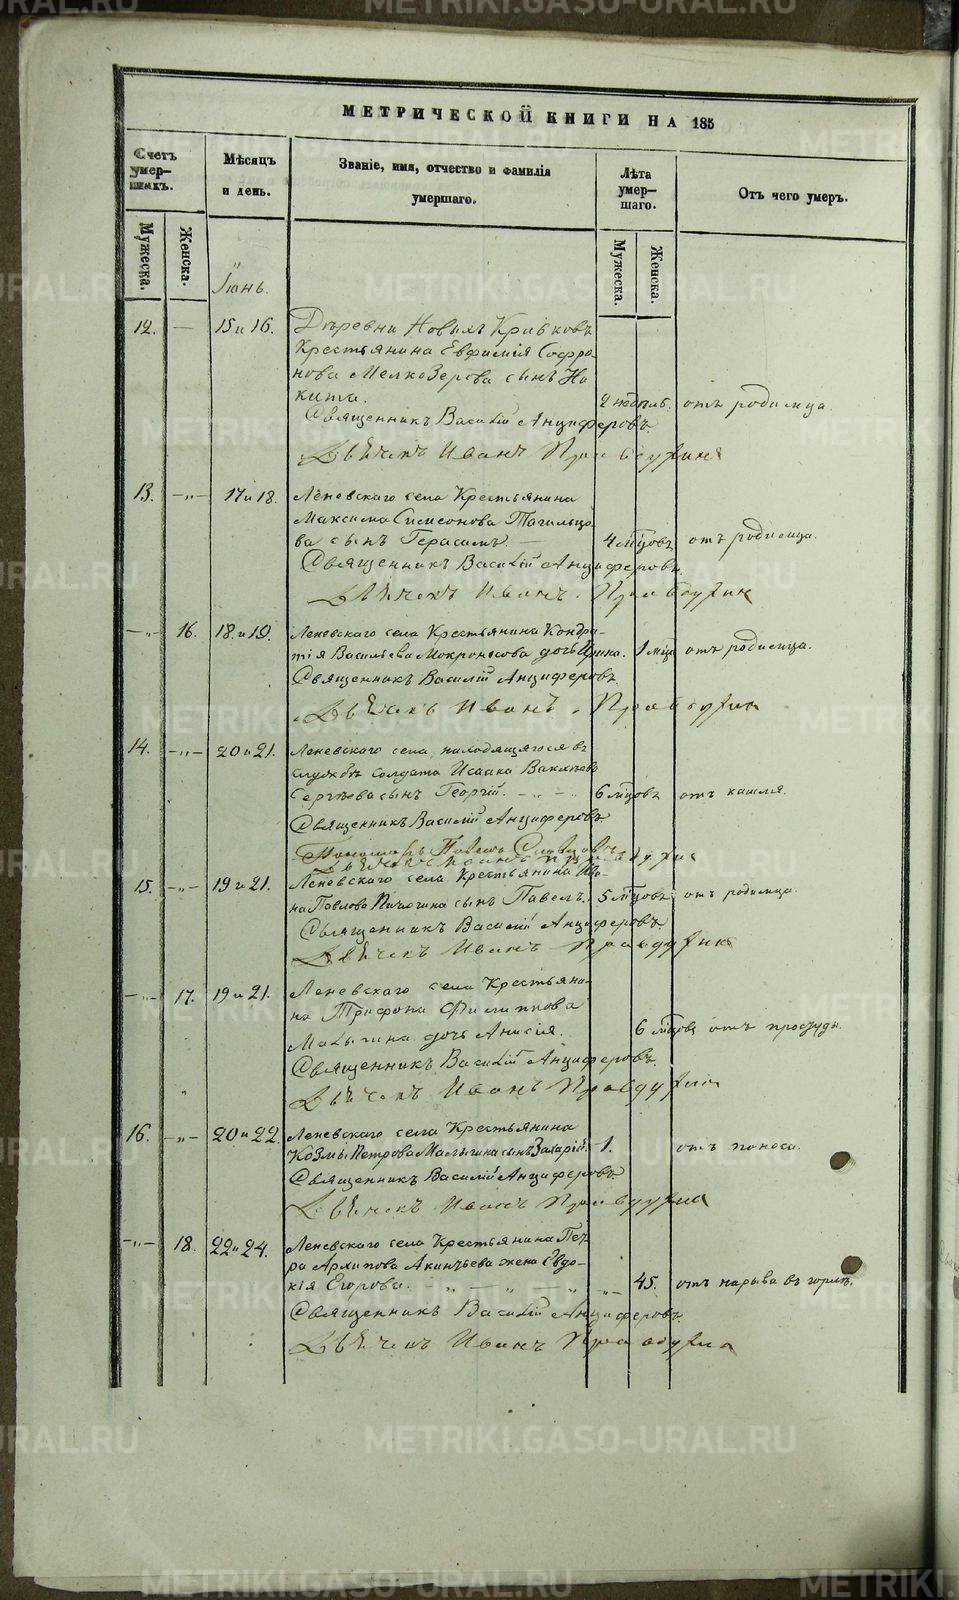 МЕТРИЧЕСКОЙ КНИГИ НА 185
Счетъ умер-шихъ.
Мѣсяцъ и день.
Званіе, имя, отчество и фамилія умершаго.
Лѣта умер-шаго.
Отъ чего умеръ.
Мужеска.
Женска.
Мужеска.
Женска.
Іюнь.
12. — 15 и 16. Деревни Новыхъ Кривковъ
Крестьянина Евфимія Софро-
нова Мелкозерова сынъ Ни
кита. 2 недѣль. отъ родимца.
Священникъ Василій Анциферовъ
Дьячекъ Иванъ
13. —"— 17 и 18. Леневскаго села Крестьянина
Максима Симеонова Тагильцо
ва сынъ Герасимъ. — 4 мѣцовъ отъ родимца.
Священникъ Василій Анциферовъ
Дьячекъ Иванъ
—"— 16. 18 и 19. Леневскаго села Крестьянина Кондра-
тія Васильева Мокроносова дочь Ирина. 1 мѣца отъ родимца.
Священникъ Василій Анциферовъ
Дьячекъ Иванъ
14. —"— 20 и 21. Леневскаго села находящагося въ
службѣ солдата Исаака
Сергѣева сынъ Георгій. 6 мѣцовъ отъ кашля.
Священникъ Василій Анциферовъ
Пономарь Павелъ
Дьячекъ Иванъ
15. —"— 19 и 21. Леневскаго села Крестьянина Ива-
на Павлова Пичюгина сынъ Павелъ. 5 мѣцовъ отъ родимца.
Священникъ Василій Анциферовъ
Дьячекъ Иванъ
—"— 17. 19 и 21. Леневскаго села Крестьяни-
на Трифона Филиппова
Малыгина дочь Анисія. 6 мѣцовъ отъ простуды.
Священникъ Василій Анциферовъ
Дьячекъ Иванъ
16. —"— 20 и 22. Леневскаго села Крестьянина
Козмы Петрова Малыгина сынъ Захарій. 1. отъ поноса.
Священникъ Василій Анциферовъ
Дьячекъ Иванъ
—"— 18. 22 и 24. Леневскаго села Крестьянина Пет
ра Архипова Акинѣева жена Евдо-
кія Егорова. 45. отъ нарыва въ горлѣ.
Священникъ Василій Анциферовъ
Дьячекъ Иванъ
METRIKI.GASO-URAL.RU